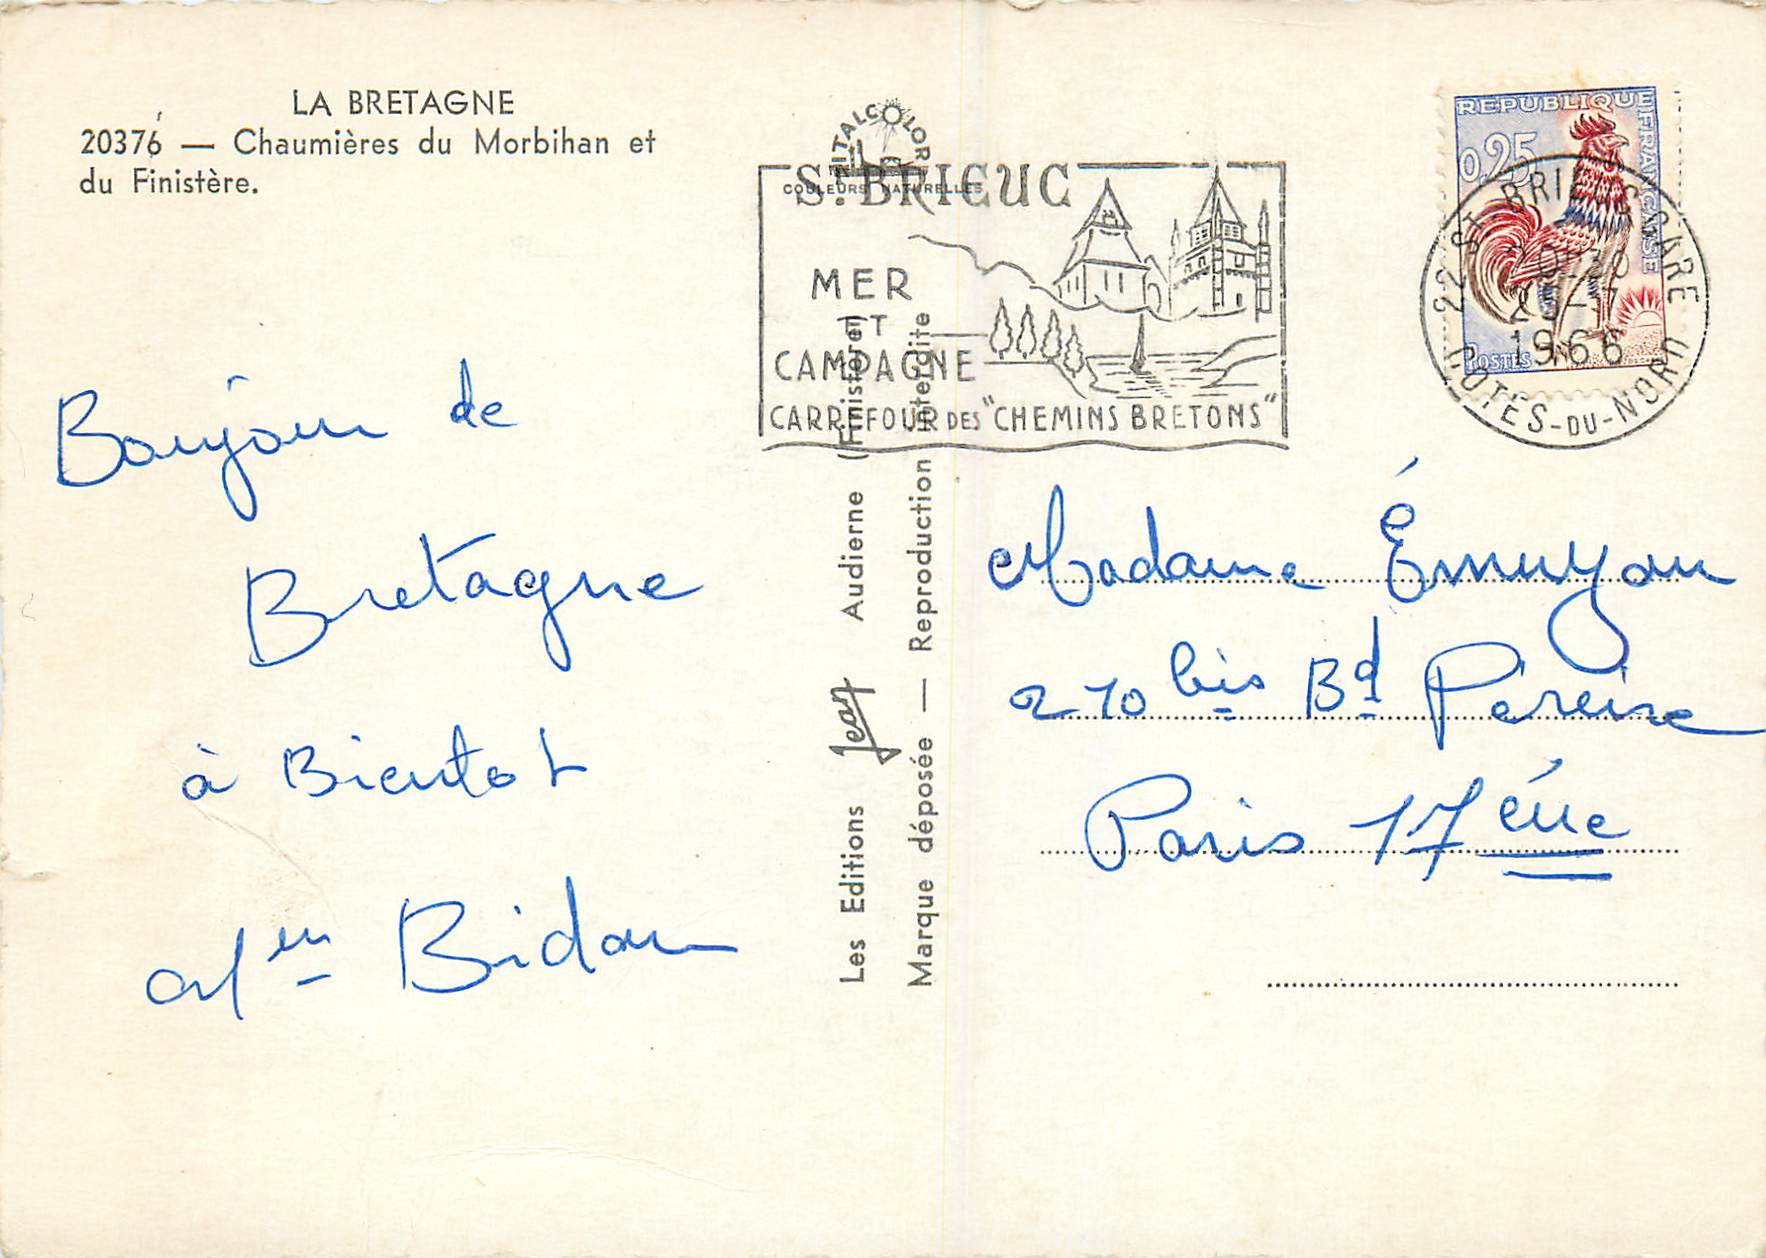 LA BRETAGNE
20376 — Chaumières du Morbihan et
du Finistère.
Bonjour de
Bretagne
à Bientot
Bidou
VITALCOLOR
COULEURS NATURELLES
Les Editions Jean Audierne (Finistère)
Marque déposée — Reproduction interdite
ST BRIEUC
MER
ET
CAMPAGNE
CARREFOUR DES "CHEMINS BRETONS"
REPUBLIQUE FRANCAISE
0,25
POSTES
22 ST BRIEUC GARE
1966
COTES-DU-NORD
Madame Émuyou
270 bis Bd Péreire
Paris 17 ème